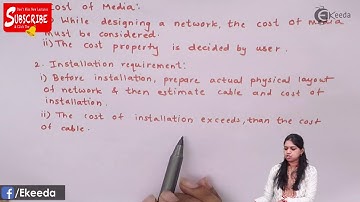 Cost of Media:
SUBSCRIBE
i) While designing a network, the cost of media
must be considered.
ii) The cost property is decided by user.
2. Installation requirement:
i) Before installation, prepare actual physical layout
of network & then estimate cable and cost of
installation.
ii) The cost of installation exceeds, than the cost
of cable.
Ekeeda
f/Ekeeda